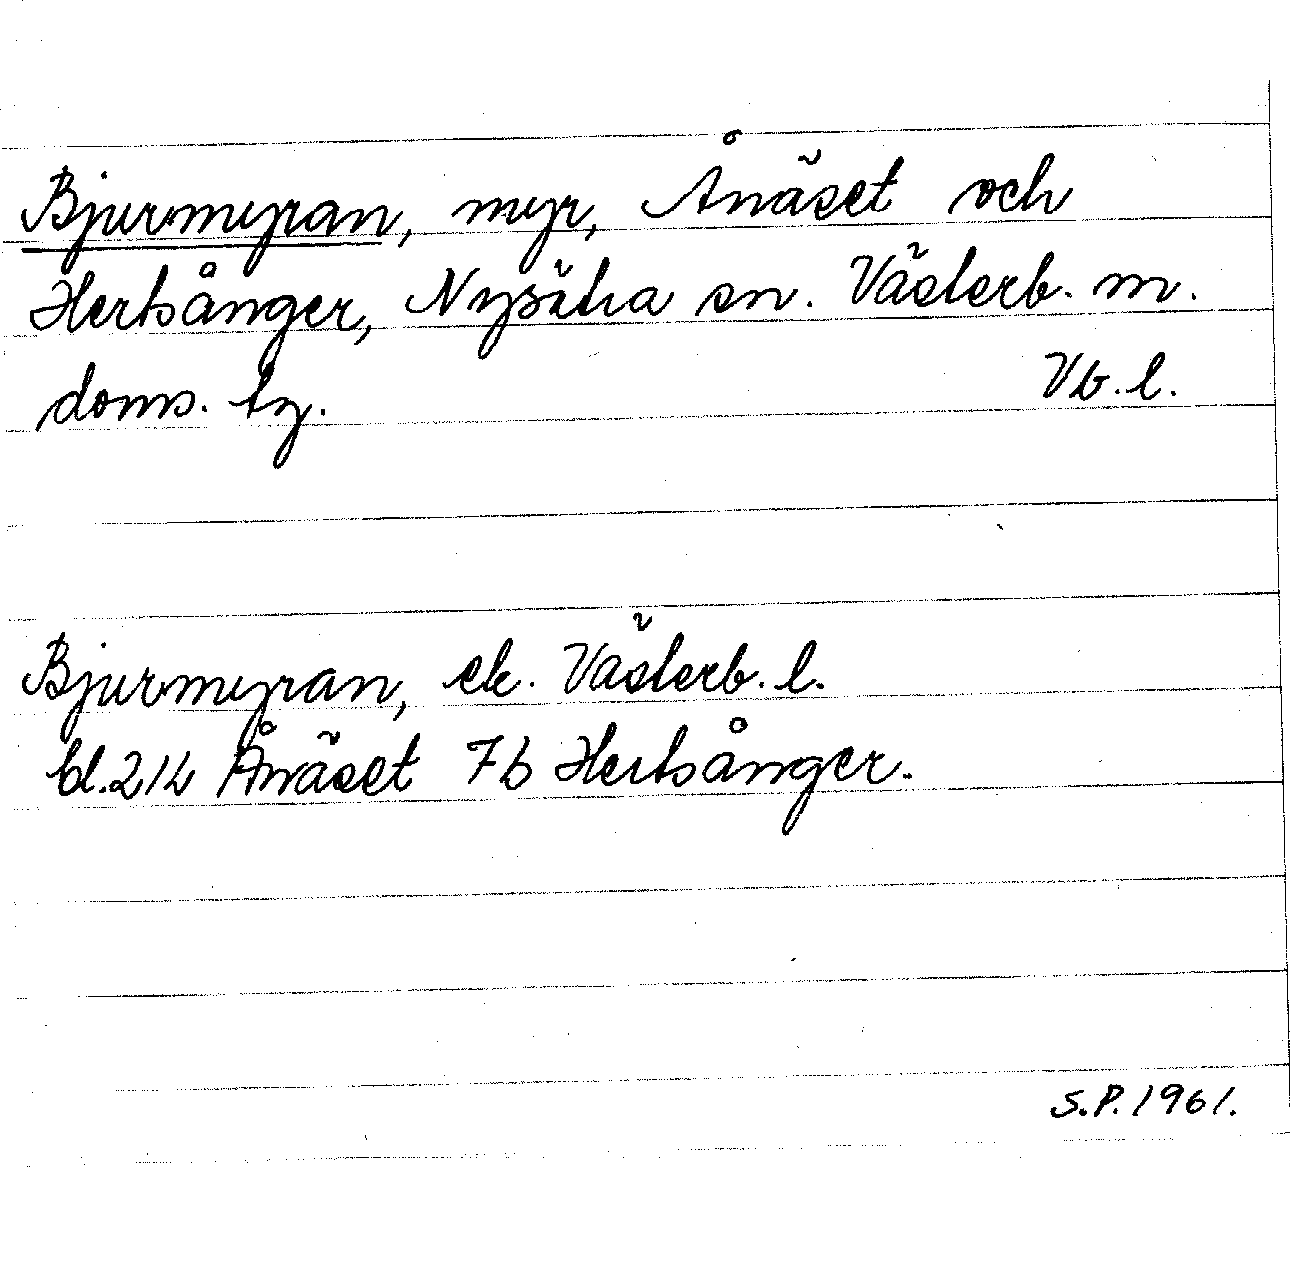 Bjurmyran, myr, Ånäset och
Hertsånger, Nysätra sn. Västerb. m.
doms. tg. Vb. l.
Bjurmyran, ek. Västerb. l.
bl. 214 Ånäset 7b Hertsånger.
S.P. 1961.